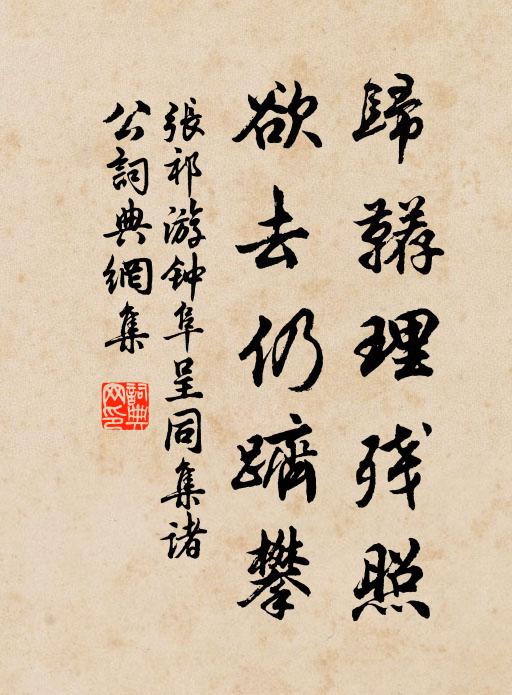 歸鞯理残照
欲去仍躋攀
張祁游钟阜呈同集諸
公詞典網集
詞典网印